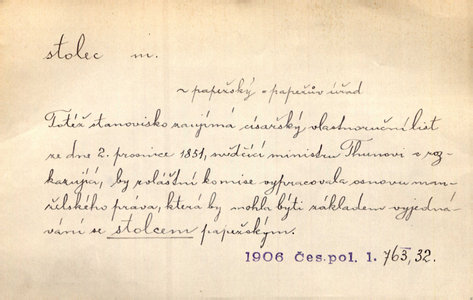 stolec m.
~ papežský = papežův úřad
Totéž stanovisko zaujímá císařský vlastnoruční list
ze dne 2. prosince 1851, svědčící ministru Thunovi a roz-
kazující, by zvláštní komise vypracovala osnovu man-
želského práva, která by mohla býti základem vyjedná-
vání se stolcem papežským.
1906 Čes. pol. 1. 763, 32.